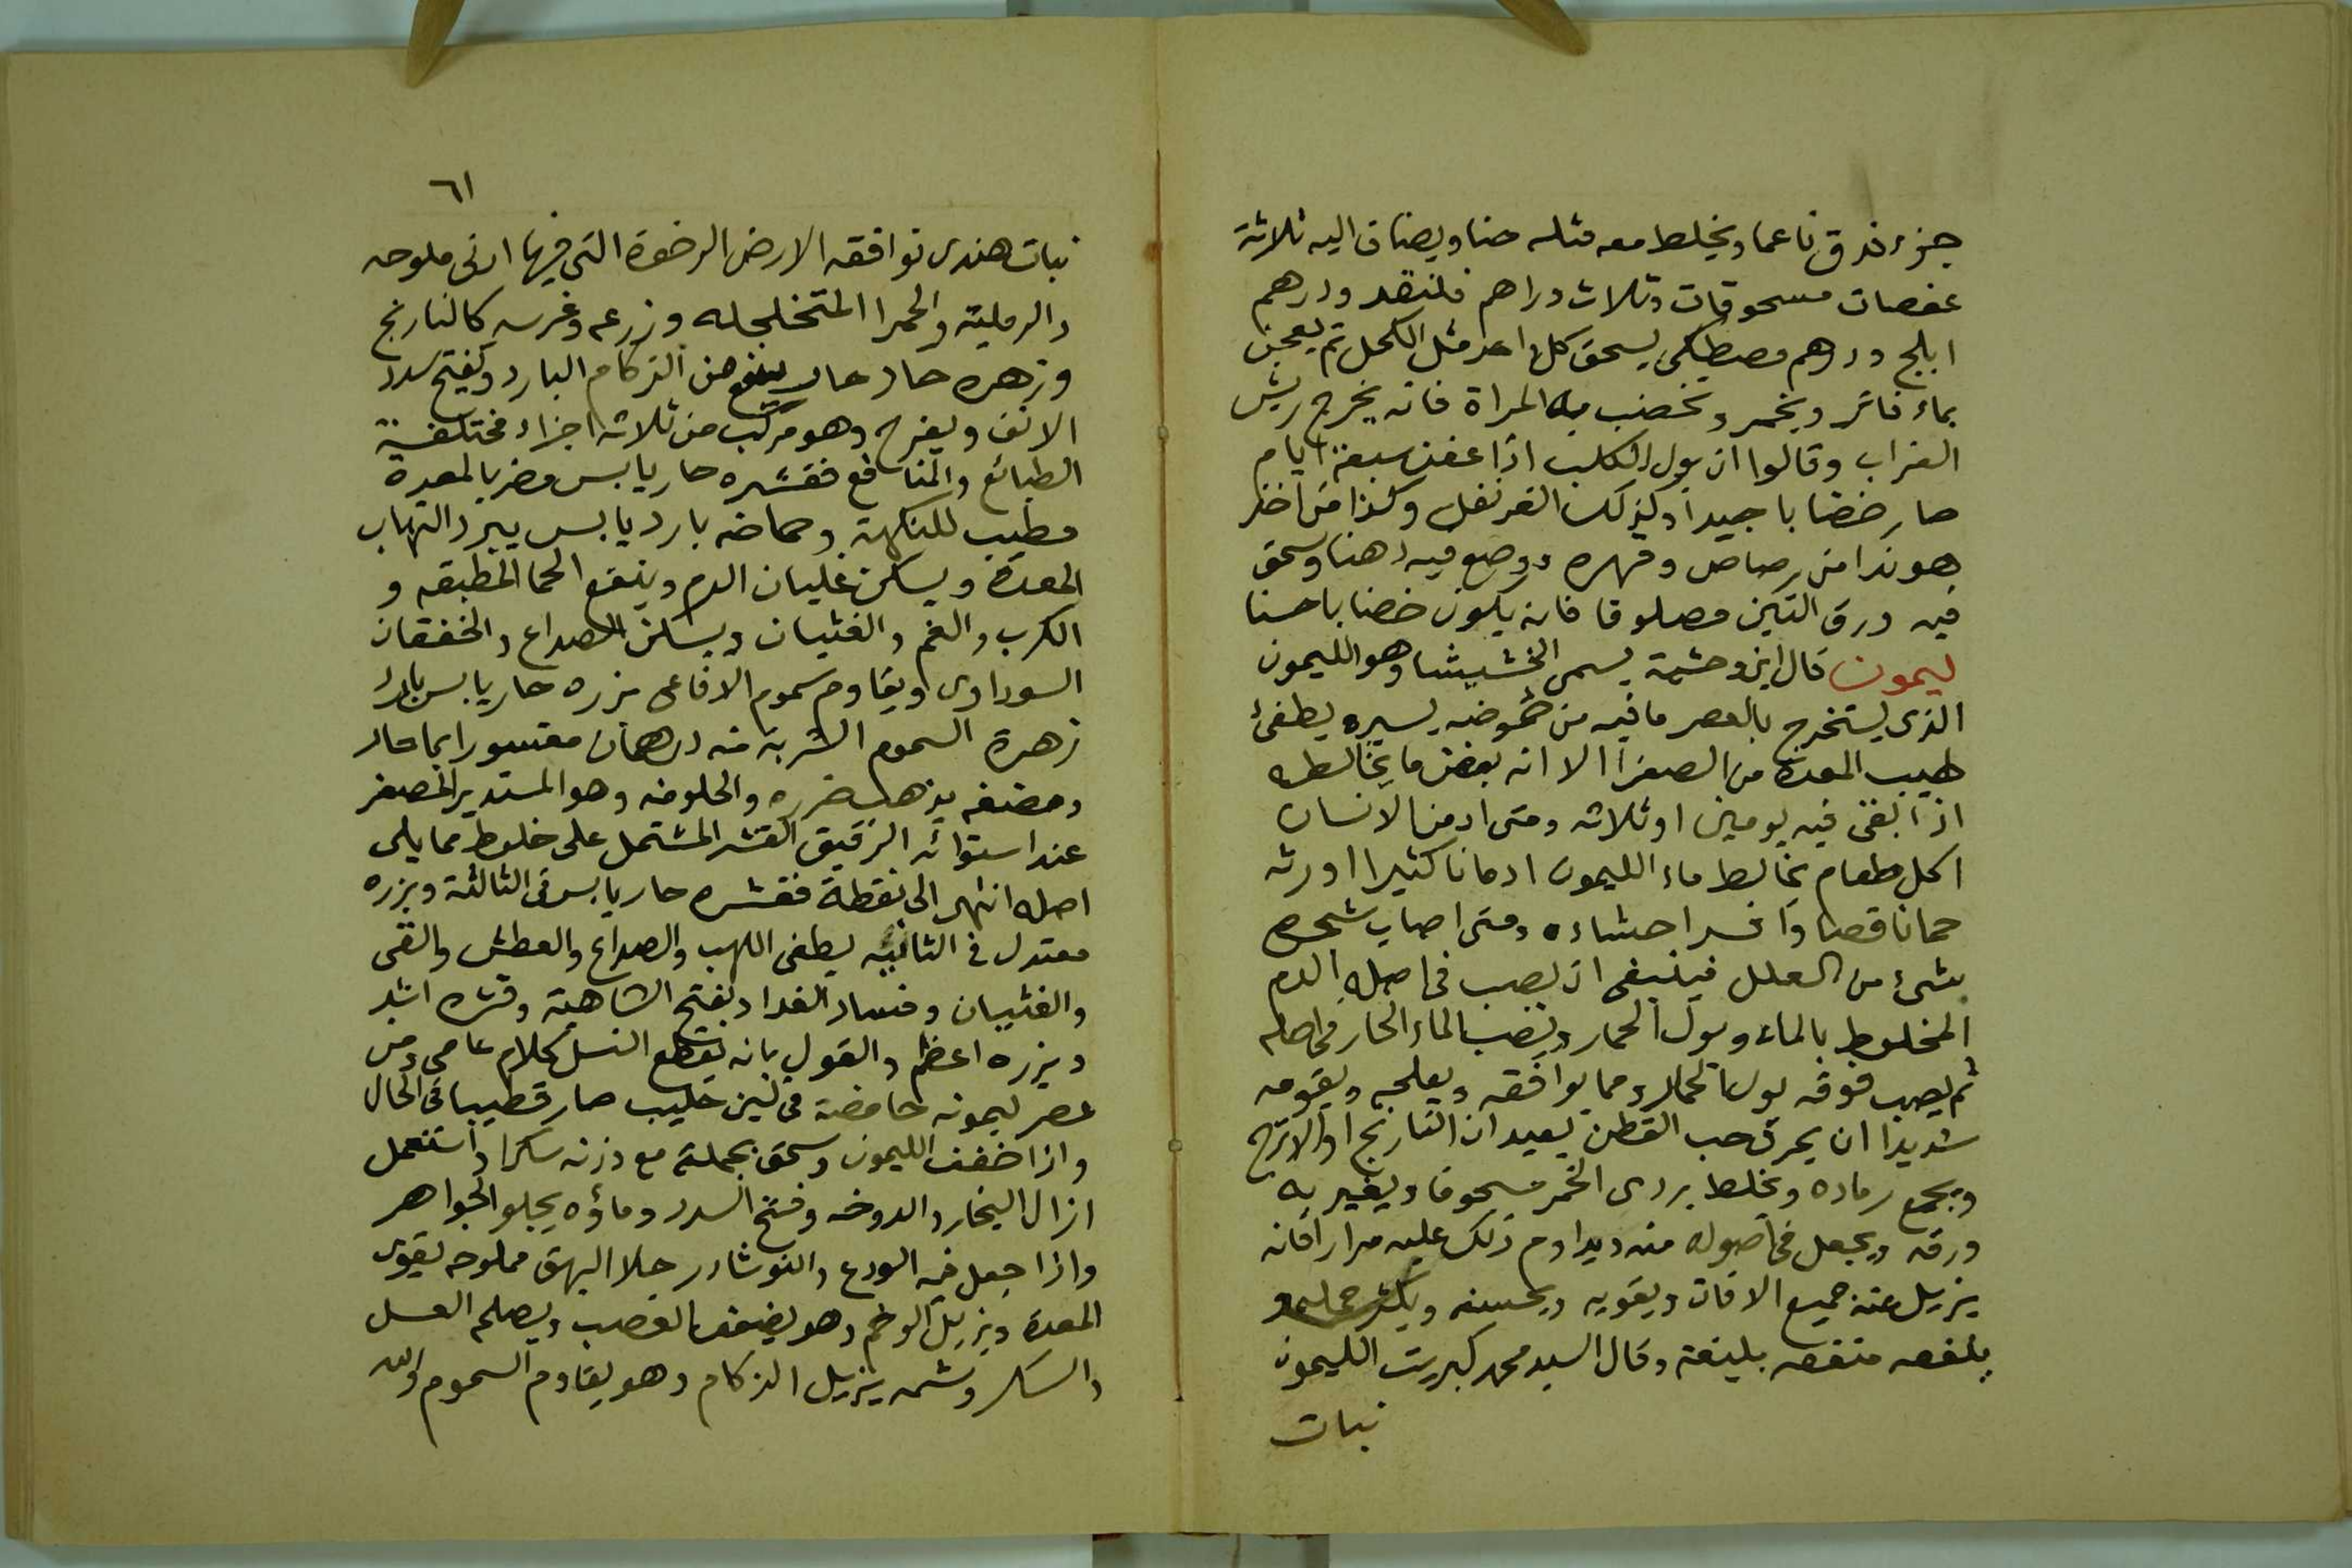 جزء فدق ناعما ويخلط معه مثله حنا ويضاف اليه ثلاثة
عفصات مسحوقات وثلاث دراهم قلنقد ودرهم
ابلج ودرهم مصطكى يسحق كل واحد مثل الكحل ثم يعجن
بماء فاتر ويخمر وتخضب به المراة فانه يخرج ريش
الغراب وقالوا ان بول الكلب اذا عفن سبعة ايام
صار خضابا جيدا وكذلك القرنفل وكذا من اخذ
هوندا من رصاص وفهره ووضع فيه دهنا وسحق
فيه ورق التين مصلوقا فانه يكون خضابا حسنا
ليمون قال ابن وحشية يسمى الخشيشا وهو الليمون
الذى يستخرج بالعصر ما فيه من حموضه يسيره يطفئ
طيب المعدة من الصفرا الا انه بعض ما يخالطه
اذا ابقى فيه يومين او ثلاثه ومتى ادمن الانسان
اكل طعام يخالط ماء الليمون ادمانا كثيرا اورثه
حمانا قصا وافسد احشاءه ومتى اصاب شجره
شئ من العلل فينبغى ان يصب فى اصله الدم
المخلوط بالماء وبول الحمار ويصب الماء الحار فى اصله
ثم يصب فوقه بول الحمار ومما يوافقه ويعلجه ويقومه
شديدا ان يحرق حب القطن بعيدان النارنج او الاترج
ويجمع رماده ويخلط بردى الخمر مسحوقا ويغبر به
ورقه ويجعل فى اصوله منه ويداوم ذلك عليه مرارا فانه
يزيل عنه جميع الافات ويقويه ويحسنه ويكثر حمله و
ينفعه منفعه بليغة وقال السيد محمد كبريت الليمون
نبات
٦١
نبات هندى توافقه الارض الرخوة التى فيها ادنى ملوحه
والرمليه والحمرا المتخلجله وزرعه وغرسه كالنارنج
وزهره حاد حار ينفع من الزكام البارد ويفتح سدد
الانف ويفرح وهو مركب من ثلاثه اجزاء مختلفة
الطبائع والمنافع فقشره حار يابس مضر بالمعدة
مطيب للنكهة وحماضه بارد يابس يبرد التهاب
المعدة ويسكن غليان الدم وينفع الحما المطبقه و
الكرب والغم والغثيان ويسكن الصداع والخفقان
السوداوى ويقاوم سموم الافاعى بزره حار يابس بارد
زهرة السموم الشربة منه درهمان مقسورا بما حار
ومضغه يذهب ضرره والحلو منه وهو المستدير المصفر
عند استوائه الرقيق القشر المشتمل على خطوط مما يلى
اصله انتهى الى نقطة فقشره حار يابس فى الثالثة وبزره
معتدل فى الثانيه يطفى اللهب والصداع والعطش والقى
والغثيان وفساد الغدا ويفتح الشاهية وقشره اشد
وبزره اعظم والقول بانه يقطع النسل كلام عامى ومن
عصر ليمونه حامضة فى لبن حليب صار قطيبا فى الحال
واذا خفف الليمون وسحق بجملته مع وزنه سكرا واستعمل
ازال البخار والدوخه وفتح السدد وماؤه يجلو الجواهر
واذا جعل فيه الودع والنوشادر جلا البهق مملوحه يقوى
المعدة ويزيل الوخم وهو يضعف العصب ويصلحه العسل
والسكر وشمه يزيل الزكام وهو يقاوم السموم والله